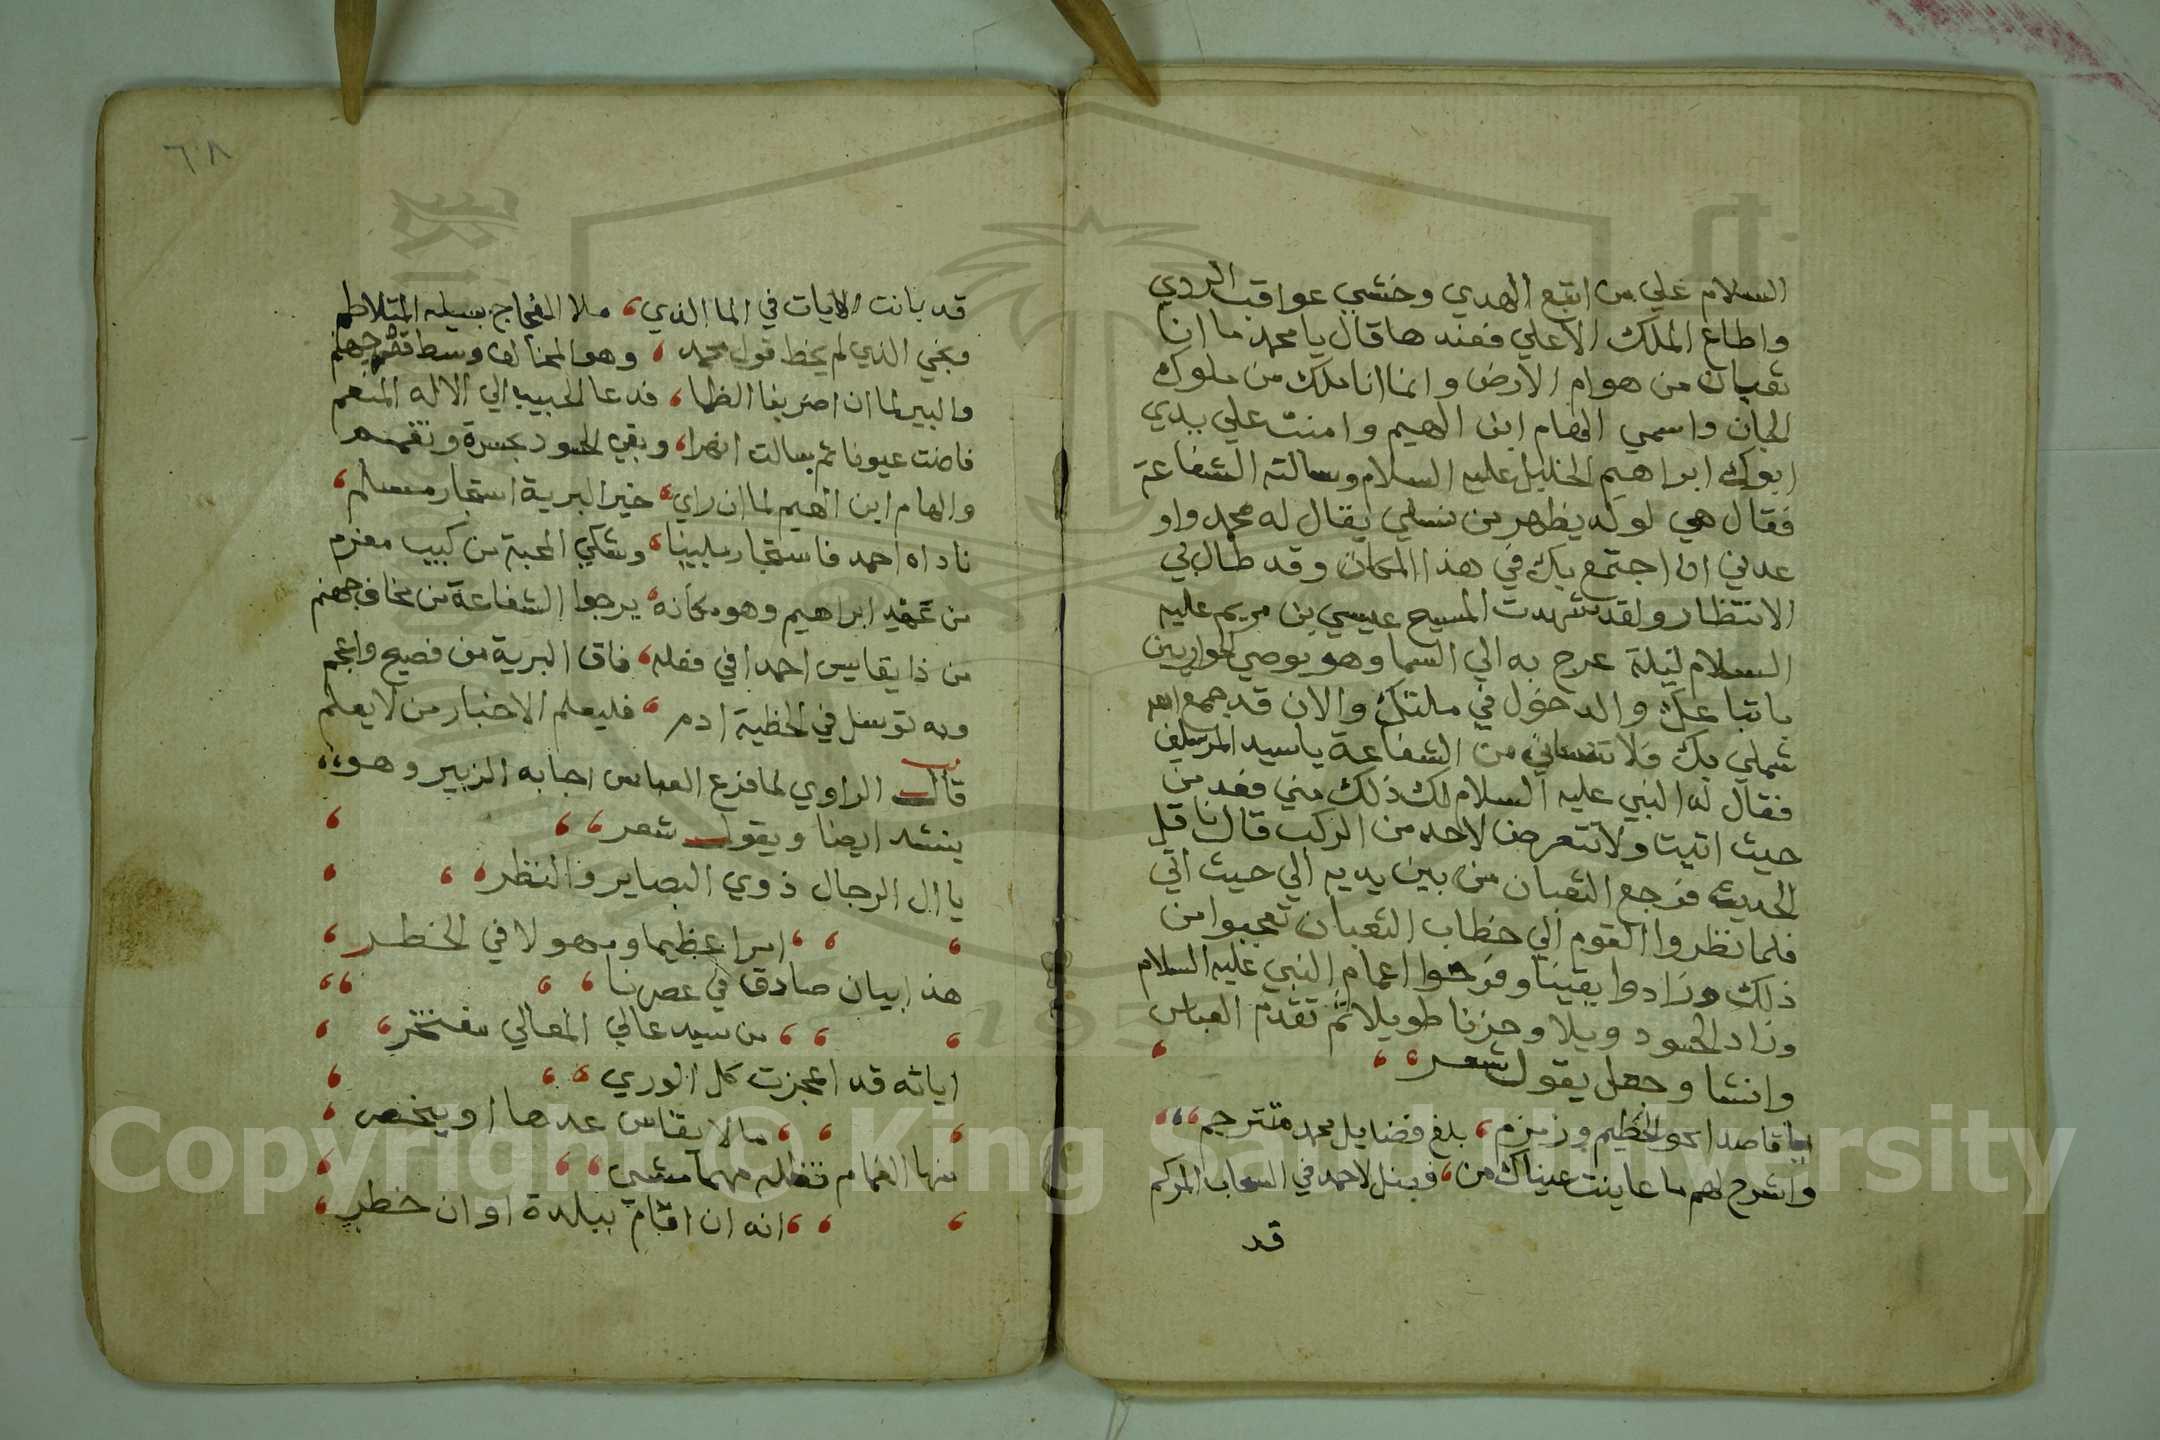 السلام علي من اتبع الهدي وخشي عواقب الردي
واطاع الملك الاعلي فعندها قال يا محمد ما انا
ثعبان من هوام الارض وانما انا ملك من ملوك
الجان واسمي الهام ابن الهيم وامنت علي يدي
ابوك ابراهيم الخليل عليه السلام وسالته الشفاعة
فقال هي لولد يظهر من نسلي يقال له محمد واو
عدني ان اجتمع بك في هذا المكان وقد طال بي
الانتظار ولقد شهدت المسيح عيسي بن مريم عليه
السلام ليلة عرج به الي السما وهو يوصي الحواريين
باتباعك والدخول في ملتك والان قد جمع الله
شملي بك فلا تنساني من الشفاعة يا سيد المرسلين
فقال له النبي عليه السلام لك ذلك مني فعد من
حيث اتيت ولا تتعرض لاحد من الركب قال ناقل
الحديث فرجع الثعبان من بين يديه الي حيث اتي
فلما نظروا القوم الي خطاب الثعبان تعجبوا من
ذلك وزادوا يقينا وفرحوا اعمام النبي عليه السلام
وزاد الحسود ويلا وحزنا طويلا ثم تقدم العباس
وانشا وجعل يقول شعر
يا قاصدا نحو الحطيم وزمزم بلغ فضايل محمد مترجم
واشرح لهم ما عاينت عيناك من فضل لاحمد في السحاب المركم
قد
٦٨
قد بانت الايات في الما الذي ملا الفجاج بسيله المتلاطم
ونجي الذي لم يخط قول محمد وهو المخالف وسط قعر جهنم
والبير لما ان اضر بنا الظما فدعا الحبيب الي الاله المنعم
فاضت عيونا ثم سالت انهرا وبقي الحسود بحسرة وتقهم
والهام ابن الهيم لما ان راي خير البرية استجار مسلم
ناداه احمد فاستجار ملبينا وشكي المحبة من كييب مغرم
من عهد ابراهيم وهو مكانه يرجوا الشفاعة من مخاف جهنم
من ذا يقايس احمدا في فضله فاق البرية من فصيح واعجم
وبه توسل في الخطية ادم فليعلم الاخبار من لا يعلم
قال الراوي لما فزع العباس اجابه الزبير وهو
ينشد ايضا ويقول شعر
يا ال الرجال ذوي البصاير والنظر
امرا عظيما ومهولا في الخطر
هذا بيان صادق في عصرنا
من سيد عالي المعالي مفتخر
اياته قد اعجزت كل الوري
ما لا يقاس عدها او ينحصر
منها الغمام تظله مهما مشي
انه ان اقام ببلدة او ان خطر
Copyright © King Saud University